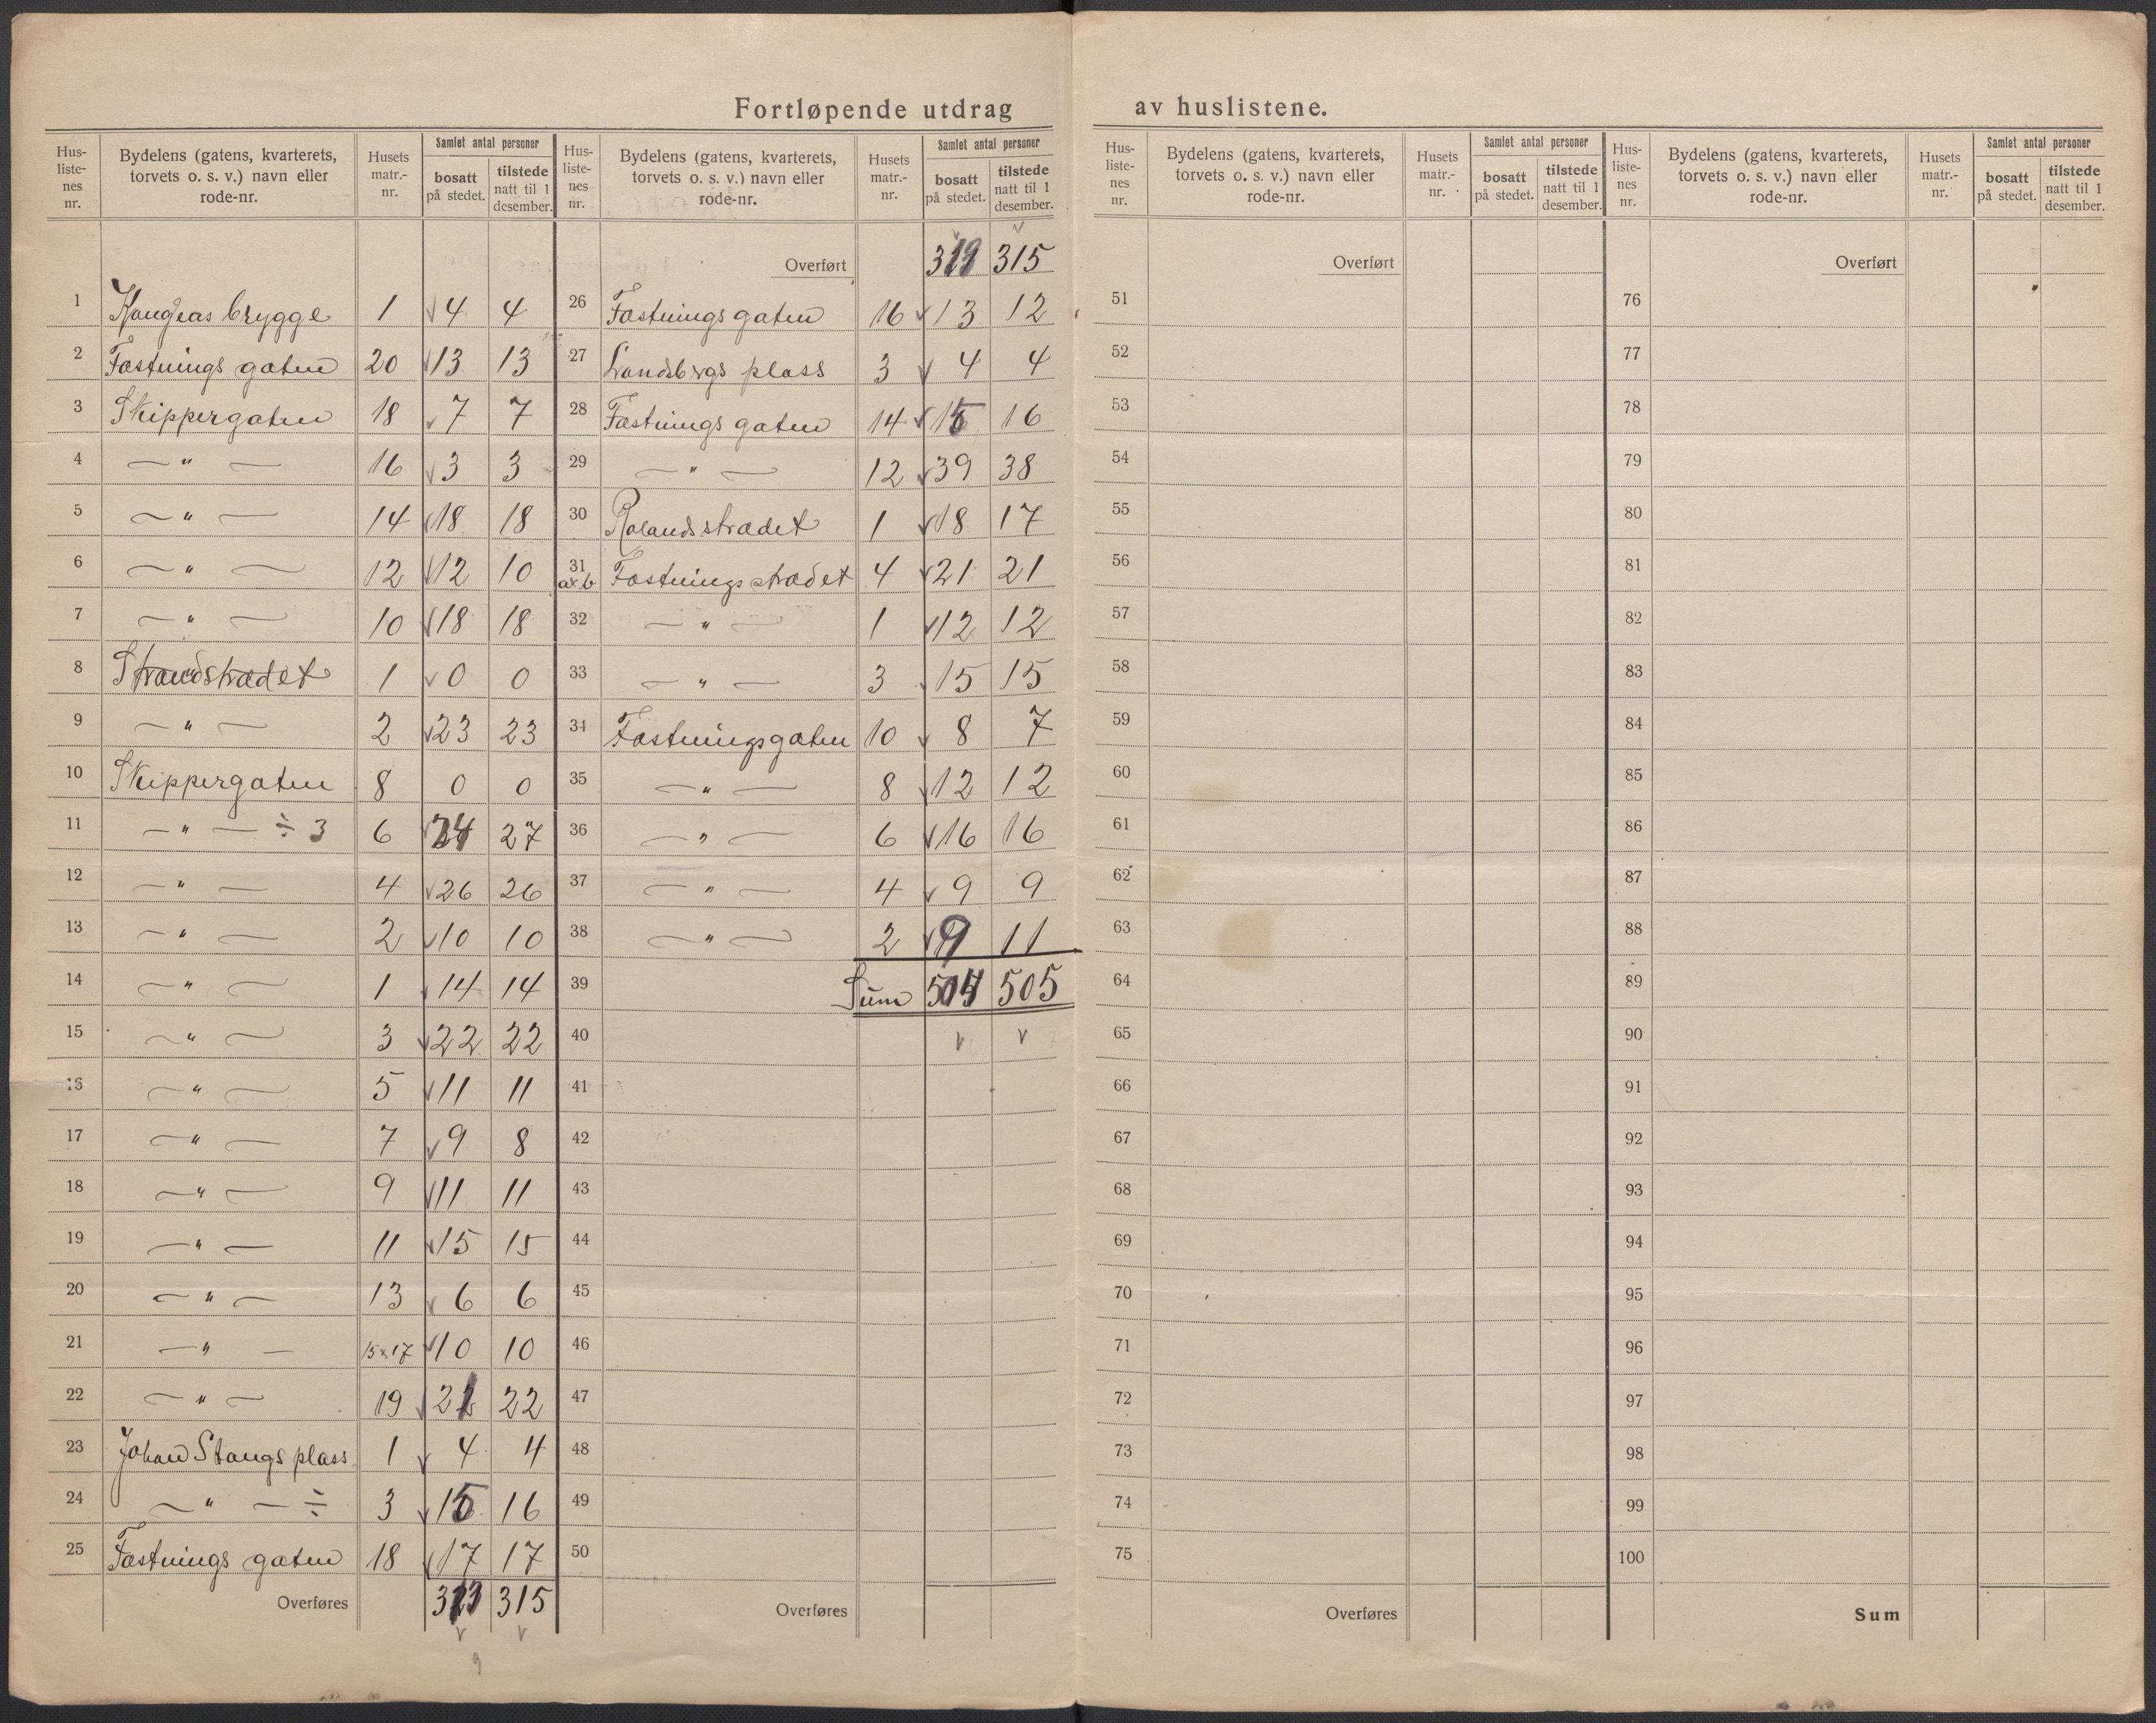 Fortløpende utdrag av huslistene.
Hus-liste-nes nr. Bydelens (gatens, kvarterets, torvets o. s. v.) navn eller rode-nr. Husets matr.-nr. Samlet antal personer bosatt på stedet. tilstede natt til 1 desember.
1 brygge 1 4 4
2 Fæstnings gaten 20 13 13
3 Skippergaten 18 7 7
4 — " — 16 3 3
5 — " — 14 18 18
6 — " — 12 12 10
7 — " — 10 18 18
8 Strandstrædet 1 0 0
9 — " — 2 23 23
10 Skippergaten 8 0 0
11 — " — ÷ 3 6 24 27
12 — " — 4 26 26
13 — " — 2 10 10
14 — " — 1 14 14
15 — " — 3 22 22
16 — " — 5 11 11
17 — " — 7 9 8
18 — " — 9 11 11
19 — " — 11 15 15
20 — " — 13 6 6
21 — " — 15 x 17 10 10
22 — " — 19 21 22
23 Johan Stangs plass 1 4 4
24 — " — ÷ 3 15 16
25 Fæstnings gaten 18 17 17
Overføres 315
9
Hus-liste-nes nr. Bydelens (gatens, kvarterets, torvets o. s. v.) navn eller rode-nr. Husets matr.-nr. Samlet antal personer bosatt på stedet. tilstede natt til 1 desember.
Overført 315
26 Fæstnings gaten 16 13 12
27 plass 3 4 4
28 Fæstnings gaten 14 15 16
29 — " — 12 39 38
30 Rolandsstrædet 1 18 17
31 a x b Fæstnings strædet 4 21 21
32 — " — 1 12 12
33 — " — 3 15 15
34 Fæstningsgaten 10 8 7
35 — " — 8 12 12
36 — " — 6 16 16
37 — " — 4 9 9
38 — " — 2 9 11
39 Sum 504 505
40
41
42
43
44
45
46
47
48
49
50
Overføres
Hus-liste-nes nr. Bydelens (gatens, kvarterets, torvets o. s. v.) navn eller rode-nr. Husets matr.-nr. Samlet antal personer bosatt på stedet. tilstede natt til 1 desember.
Overført
51
52
53
54
55
56
57
58
59
60
61
62
63
64
65
66
67
68
69
70
71
72
73
74
75
Overføres
Hus-liste-nes nr. Bydelens (gatens, kvarterets, torvets o. s. v.) navn eller rode-nr. Husets matr.-nr. Samlet antal personer bosatt på stedet. tilstede natt til 1 desember.
Overført
76
77
78
79
80
81
82
83
84
85
86
87
88
89
90
91
92
93
94
95
96
97
98
99
100
Sum